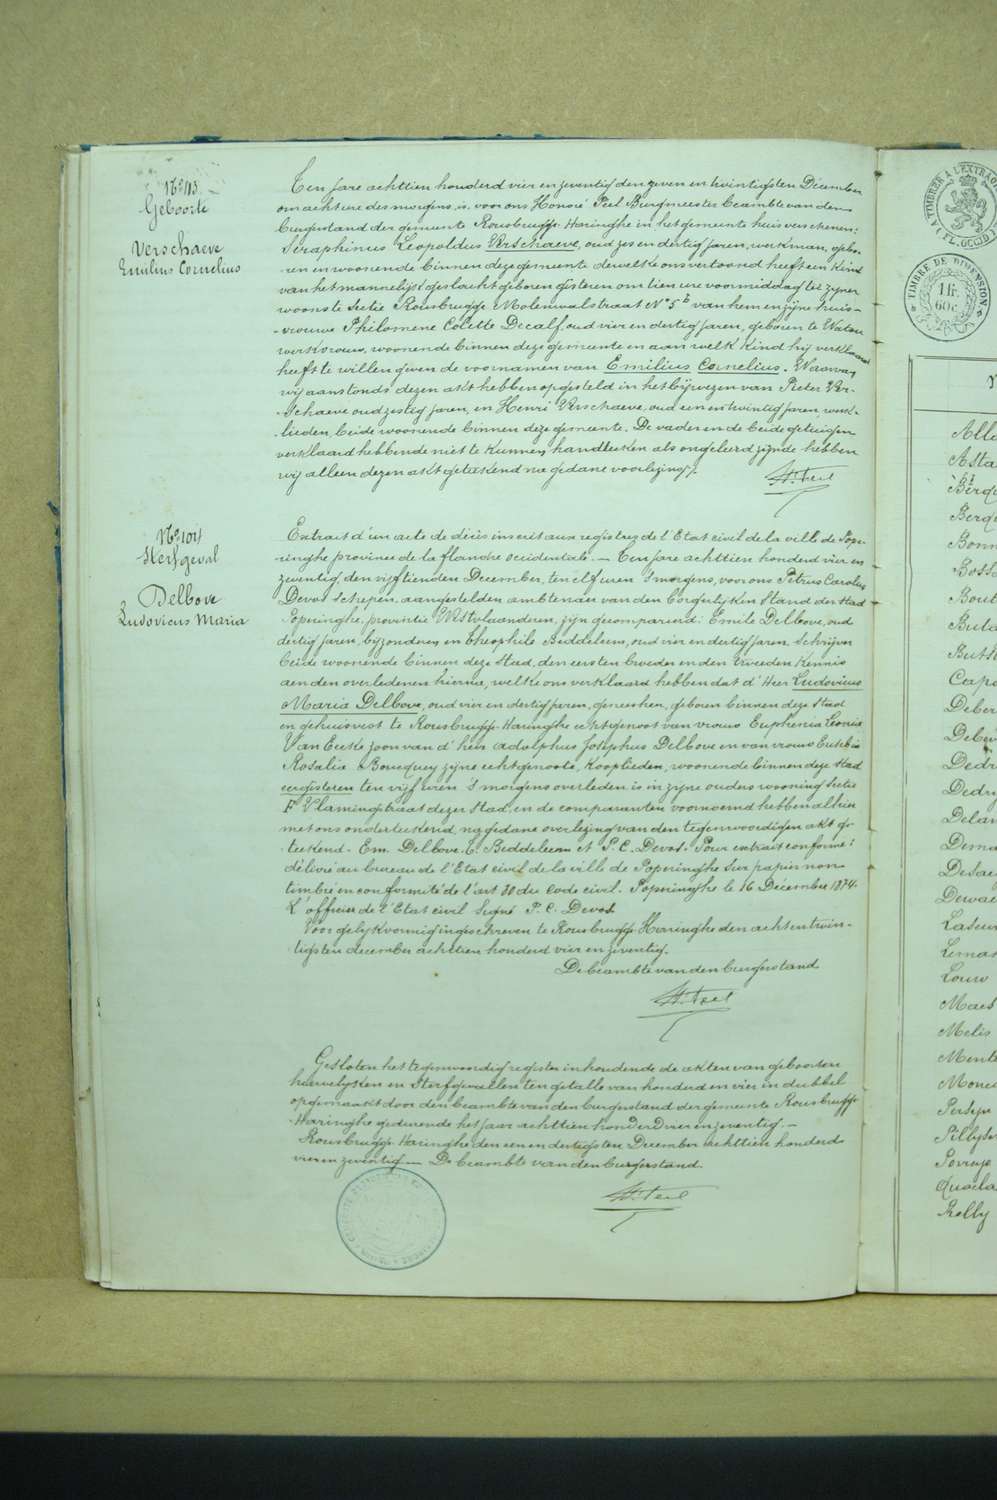 N° 113
Geboorte
Verschaeve
Emilius Cornelius
Ten jare achttien honderd vier en zeventig den zeven en twintigsten December
om acht ure des morgens, is voor ons Honoré Peel Burgmeester Beambte van den
Burgerstand der gemeente Rousbrugge Haringhe in het gemeente huis verschenen:
Seraphinus Leopoldus Verschaeve, oud zes en dertig jaren, werkman, gebo-
ren en woonende binnen deze gemeente dewelke ons vertoond heeft een kind
van het mannelijk geslacht geboren gisteren om tien ure voormiddag ter zijner
woonste Sectie Rousbrugge Molenwalstraat N° 5 b van hem en zijne huis-
-vrouwe Philomene Colette Decalf, oud vier en dertig jaren, geboren te Watou
werkvrouw, woonende binnen deze gemeente en aan welk kind hij verklaard
heeft te willen geven de voornamen van Emilius Cornelius. Waarvan
wij aanstonds dezen akt hebben opgesteld in het bijwezen van Pieter Ver-
-schaeve oud zestig jaren, en Henri Verschaeve, oud een en twintig jaren, werk-
-lieden, beide woonende binnen deze gemeente. De vader en de beide getuigen
verklaard hebbende niet te kunnen handteeken als ongeleerd zijnde hebben
wij alleen dezen akt geteekend na gedane voorlezing.
H. Peel
N° 104
Sterfgeval
Delbove
Ludovicus Maria
Extrait d'un acte de décès inscrit aux registres de l'Etat civil de la ville de Pope-
ringhe province de la flandre occidentale. — Ten jare achttien honderd vier en
zeventig, den vijftienden December, ten elf uren 's morgens, voor ons Petrus Carolus
Devos Schepen aangestelden ambtenaar van den Borgerlijken Stand der stad
Poperinghe, provintie Westvlaanderen, zijn gecompareerd: Emile Delbove, oud
dertig jaren, bijzonderen en Theophile Beddeleem, oud vier en dertig jaren, Schrijver
beide woonende binnen deze Stad, den eersten broeder en den tweeden Kennis
aen den overledenen hierna, welke ons verklaard hebben dat d'Heer Ludovicus
Maria Delbove, oud vier en dertig jaren, geneesheer, geboren binnen deze stad
en gehuisvest te Rousbrugge-Haringhe echtgenoot van vrouw Euphenia Leonia
Van Eecke zoon van d'heer Adolphus Josephus Delbove en van vrouw Eusebia
Rosalia Boucquey zijne echtgenoote, Kooplieden, woonende binnen deze stad
eergisteren ten vijf uren 's morgens overleden is in zijne ouders wooning Sectie
F Vlamingstraat dezer Stad, en de comparanten voornoemd hebben alhier
met ons onderteekend, na gedane overlezing van den tegenwoordigen akt ge-
teekend. Em. Delbove. T. Beddeleem et P. C. Devos. Pour extrait conforme:
délivré au bureau de l'Etat civil de la ville de Poperinghe sur papier non
timbré en conformité de l'art 80 du Code civil. Poperinghe le 16 Décembre 1874.
L'officier de l'Etat civil Signé P. C. Devos.
Voor gelijkvormig ingeschreven te Rousbrugge Haringhe den acht en twin-
tigsten december achttien honderd vier en zeventig.
De beambte van den burgerstand
H. Peel
Gesloten het tegenwoordig register inhoudende de akten van geboorten
huwelijken en Sterfgevallen ten getalle van honderd en vier in dubbel
opgemaakt door den beambte van den burgerstand der gemeente Rousbrugge
Haringhe gedurende het jaar achttien honderd vier en zeventig. —
Rousbrugge Haringhe den een en dertigsten December achttien honderd
vier en zeventig — De beambte van den burgerstand.
H. Peel
TIMBRE DE DIMENSION
1 fr.
60c.
(FL. OCCID)
Alle
Asta
Berq
Berq
Bonn
Bossa
Bout
Buta
Butt
Capo
Deber
Dedr
Dedry
Delan
Dema
Desae
Dewae
Laseur
Lemas
Louw
Maes
Melis
Mente
Monce
Persyn
Pillyse
Quaela
Relly